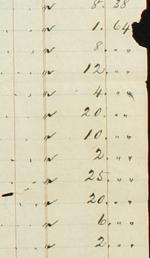 " 8. 38
" 1. 64
" 8. " "
" 12. " "
" 4. " "
" 20. " "
" 10. " "
" 2. " "
" 25. " "
" 20. " "
" 6. " "
" 2. " "